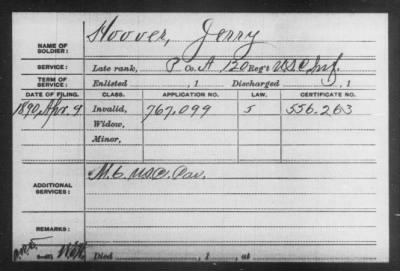 NAME OF SOLDIER: Hoover, Jerry
SERVICE: Late rank, P Co. A 120 Reg't U.S.C. Inf.
TERM OF SERVICE: Enlisted , 1 Discharged , 1
DATE OF FILING. CLASS. APPLICATION NO. LAW. CERTIFICATE NO.
1890, Apr. 9 Invalid, 767.099 5 556.263
Widow,
Minor,
ADDITIONAL SERVICES: M. 6. U.S.C. Cav.
REMARKS:
Died , 1 , at